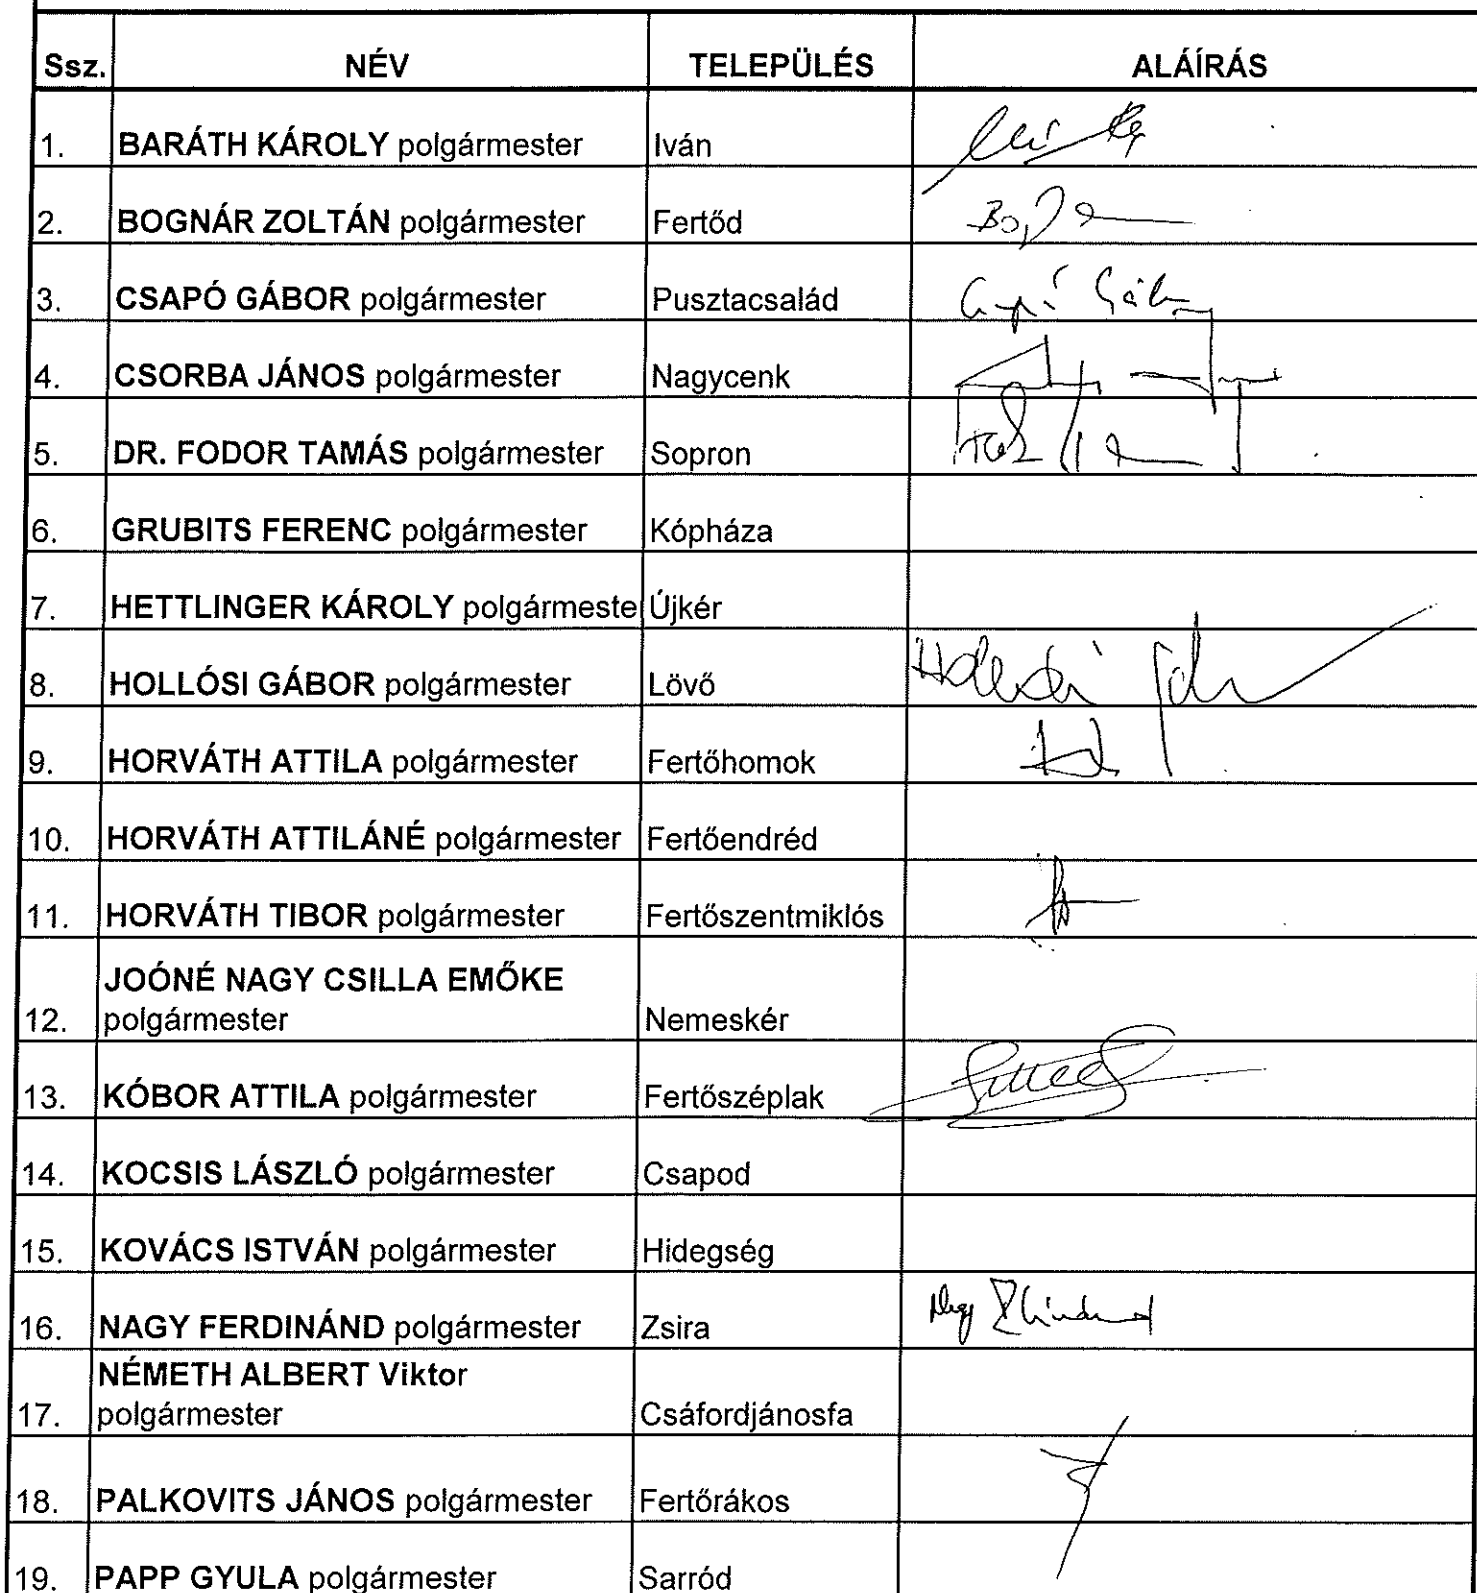 Ssz. NÉV TELEPÜLÉS ALÁÍRÁS
1. BARÁTH KÁROLY polgármester Iván
2. BOGNÁR ZOLTÁN polgármester Fertőd
3. CSAPÓ GÁBOR polgármester Pusztacsalád
4. CSORBA JÁNOS polgármester Nagycenk
5. DR. FODOR TAMÁS polgármester Sopron
6. GRUBITS FERENC polgármester Kópháza
7. HETTLINGER KÁROLY polgármeste Újkér
8. HOLLÓSI GÁBOR polgármester Lövő
9. HORVÁTH ATTILA polgármester Fertőhomok
10. HORVÁTH ATTILÁNÉ polgármester Fertőendréd
11. HORVÁTH TIBOR polgármester Fertőszentmiklós
JOÓNÉ NAGY CSILLA EMŐKE
12. polgármester Nemeskér
13. KÓBOR ATTILA polgármester Fertőszéplak
14. KOCSIS LÁSZLÓ polgármester Csapod
15. KOVÁCS ISTVÁN polgármester Hidegség
16. NAGY FERDINÁND polgármester Zsira
NÉMETH ALBERT Viktor
17. polgármester Csáfordjánosfa
18. PALKOVITS JÁNOS polgármester Fertőrákos
19. PAPP GYULA polgármester Sarród